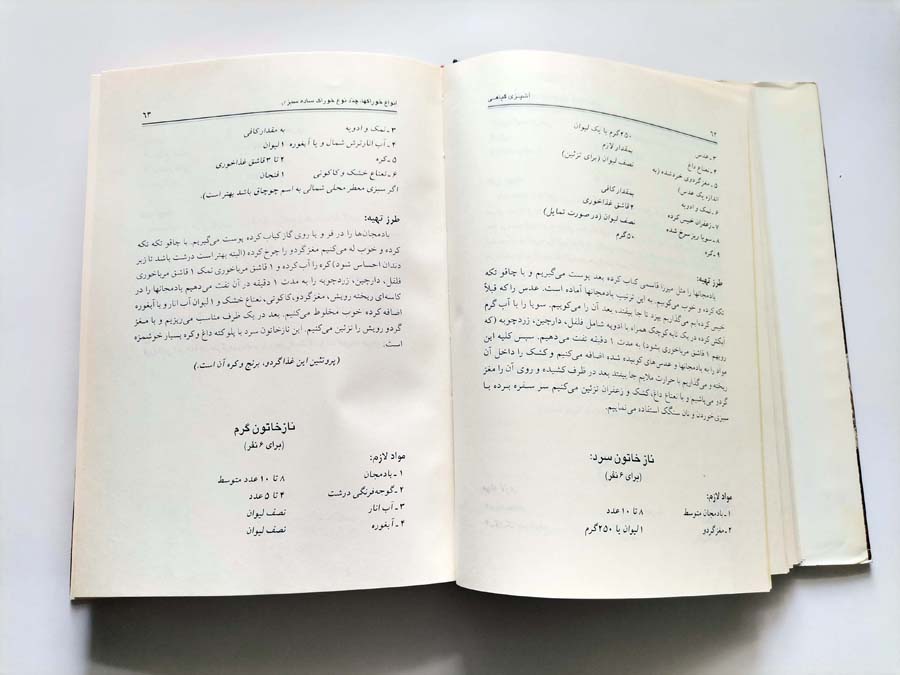 ۶۲
آشپزی گیاهی
۳ـ عدس ۲۵۰گرم یا یک لیوان
۴ـ نعناع داغ بمقدار لازم
۵ـ مغزگردوی خردشده (به نصف لیوان (برای تزئین)
اندازه یک عدس)
۶ـ نمک و ادویه بمقدار کافی
۷ـ زعفران خیس کرده ۲ قاشق غذاخوری
۸ـ سویا ریز سرخ شده نصف لیوان (در صورت تمایل)
۹ـ کره ۵۰گرم
طرز تهیه:
بادمجانها را مثل میرزا قاسمی کباب کرده بعد پوست می‌گیریم و با چاقو تکه
تکه کرده و خوب می‌کوبیم. به این ترتیب بادمجانها آماده است. عدس را که قبلاً
خیس کرده‌ایم می‌گذاریم بپزد تا جا بیفتد، بعد آن را می‌کوبیم. سویا را با آب گرم
آبکش کرده در یک تابه کوچک همراه با ادویه شامل فلفل، دارچین، زردچوبه (که
رویهم ۱ قاشق مرباخوری بشود) به مدت ۱ دقیقه تفت می‌دهیم. سپس کلیه این
مواد را به بادمجانها و عدس‌های کوبیده شده اضافه می‌کنیم و کشک را داخل آن
ریخته و می‌گذاریم با حرارت ملایم جا بیفتد بعد در ظرف کشیده و روی آن را مغز
گردو می‌پاشیم و با نعناع داغ، کشک و زعفران تزئین می‌کنیم سر سفره برده با
سبزی خوردن و نان سنگک استفاده می‌نماییم.
ناز خاتون سرد:
(برای ۶ نفر)
مواد لازم:
۱ـ بادمجان متوسط ۸ تا ۱۰ عدد
۲ـ مغزگردو ۱ لیوان یا ۲۵۰گرم
انواع خوراکها، چند نوع خوراک ساده سبزی
۶۳
۳ـ نمک و ادویه به مقدار کافی
۴ـ آب انارترش شمال و یا آبغوره ۱ لیوان
۵ـ کره ۲ تا ۳ قاشق غذاخوری
۶ـ نعناع خشک و کاکوتی ۱ فنجان
اگر سبزی معطر محلی شمالی به اسم چوچاق باشد بهتر است).
طرز تهیه:
بادمجان‌ها را در فر و یا روی گاز کباب کرده پوست می‌گیریم. با چاقو تکه تکه
کرده و خوب له می‌کنیم مغزگردو را چرخ کرده (البته بهتر است درشت باشد تا زیر
دندان احساس شود) کره را آب کرده و ۱ قاشق مرباخوری نمک ۱ قاشق مرباخوری
فلفل، دارچین، زردچوبه را به مدت ۱ دقیقه در آن تفت می‌دهیم بادمجانها را در
کاسه‌ای ریخته رویش، مغزگردو، کاکوتی، نعناع خشک و ۱ لیوان آب انار و یا آبغوره
اضافه کرده خوب مخلوط می‌کنیم. بعد در یک ظرف مناسب می‌ریزیم و با مغز
گردو رویش را تزئین می‌کنیم. این نازخاتون سرد با پلو کته داغ وکره بسیار خوشمزه
است.
(پروتئین این غذا گردو، برنج وکره آن است.)
نازخاتون گرم
(برای ۶ نفر)
مواد لازم:
۱ـ بادمجان ۸ تا ۱۰ عدد متوسط
۲ـ گوجه‌فرنگی درشت ۴ تا ۵ عدد
۳ـ آب انار نصف لیوان
۴ـ آبغوره نصف لیوان